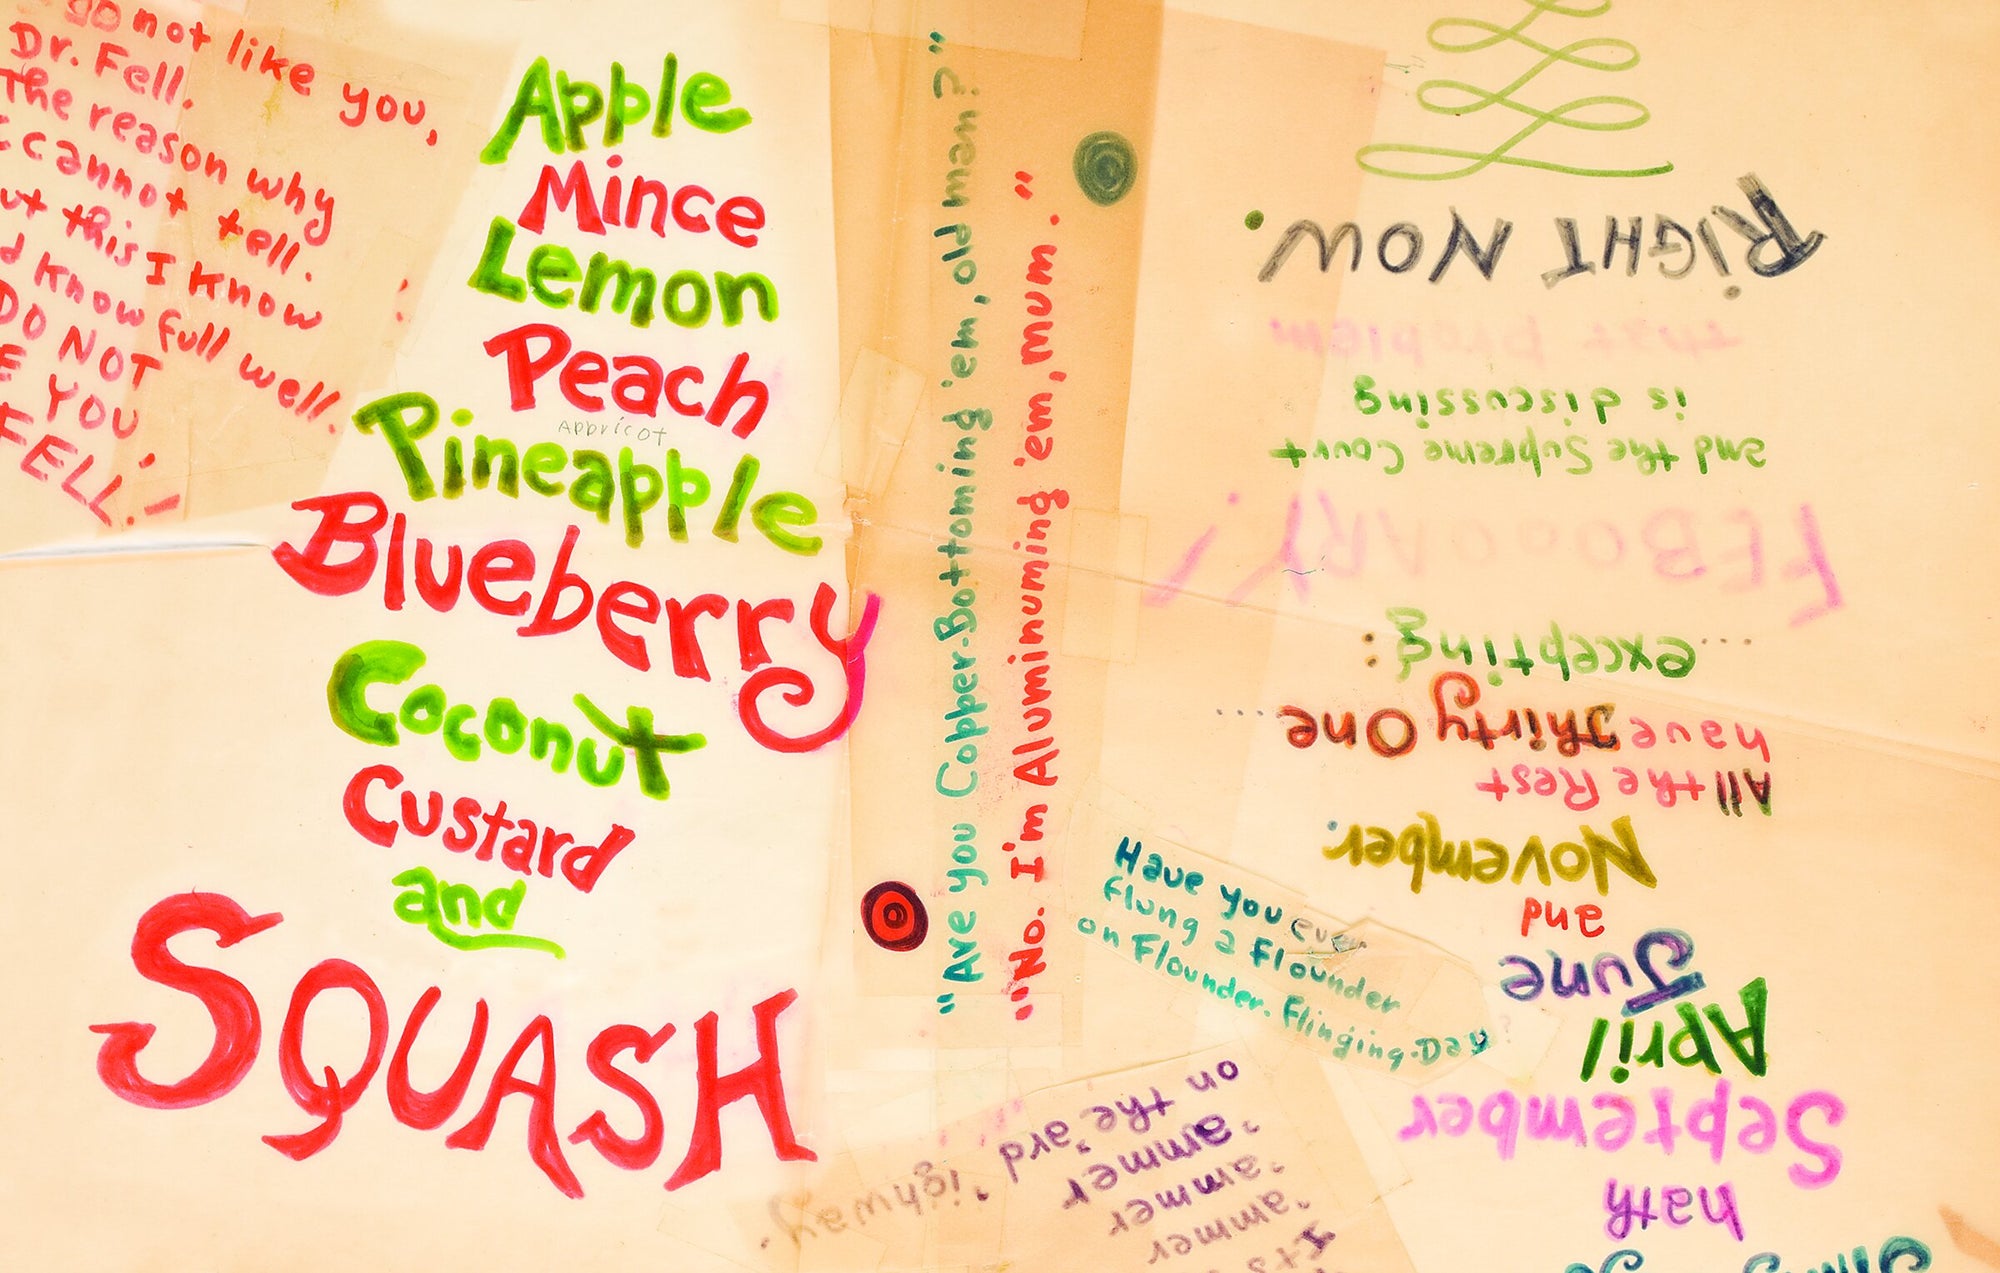 do not like you,
Dr. Fell.
The reason why
I cannot tell.
But this I know
d know full well.
DO NOT
YOU
FELL!
Apple
Mince
Lemon
Peach
Appricot
Pineapple
Blueberry
Coconut
Custard
and
SQUASH
"Are you Copper-Bottoming 'em, old man?"
"No. I'm Aluminuming 'em, mum."
Have you ever
flung a flounder
on Flounder-Flinging-Day?
'ammer
'ammer
'ammer
'ammer
on the 'ard 'ighway.
hath
September
April
June
and
November.
All the Rest
have Thirty One....
...excepting:
FEBOOOARY!
and the Supreme Court
is discussing
that problem
RIGHT NOW.